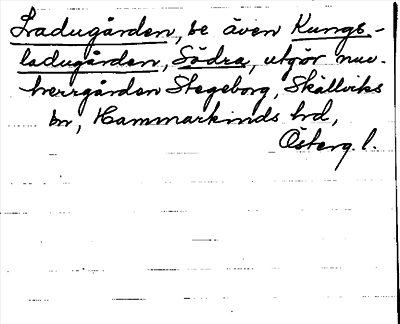 Ladugården, be även Kungs-
ladugården, Södra, utgör nuv.
herrgården Stegeborg, Skällviks
sn, Hammarkinds hd,
Österg. l.